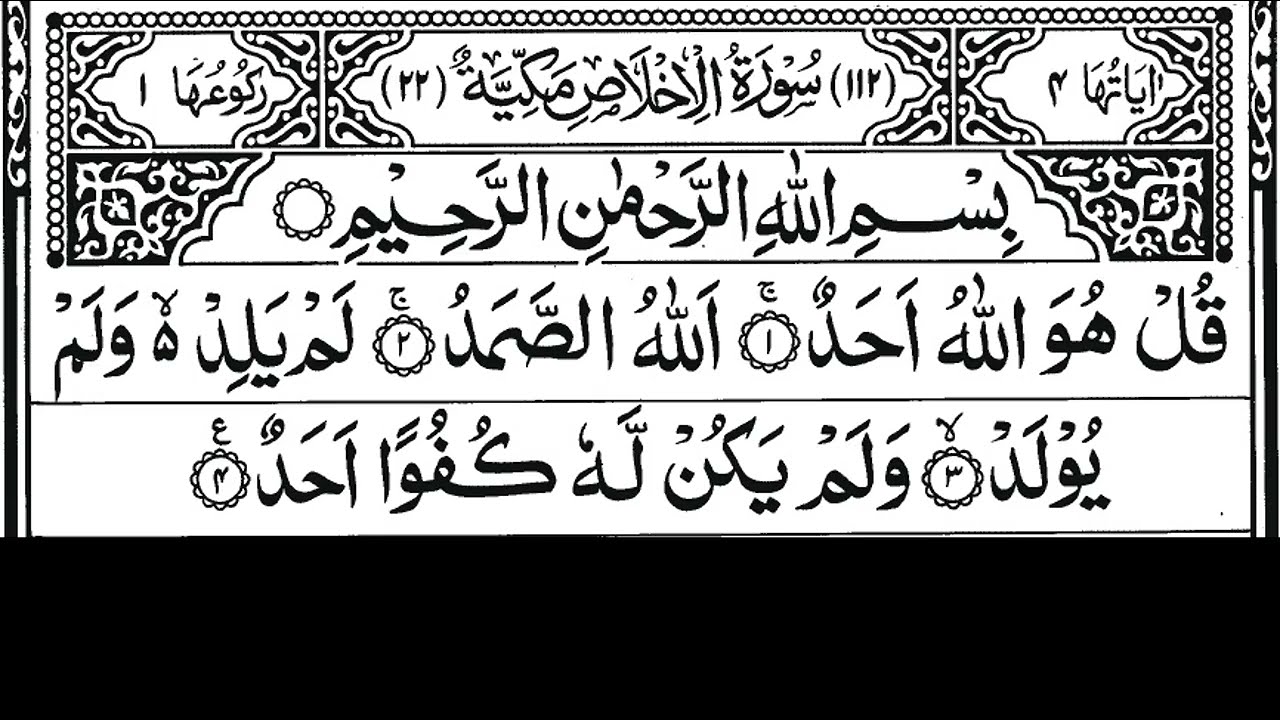 اٰيَاتُهَا ۴ (۱۱۲) سُوْرَةُ الْاِخْلَاصِ مَكِّيَّةٌ (۲۲) رُكُوْعُهَا ۱
بِسْمِ اللّٰهِ الرَّحْمٰنِ الرَّحِيْمِ
قُلْ هُوَ اللّٰهُ اَحَدٌ ۚ۱ اَللّٰهُ الصَّمَدُ ۚ۲ لَمْ يَلِدْ ۙ۵ وَلَمْ
يُوْلَدْ ۙ۳ وَلَمْ يَكُنْ لَّهٗ كُفُوًا اَحَدٌ ع ۴